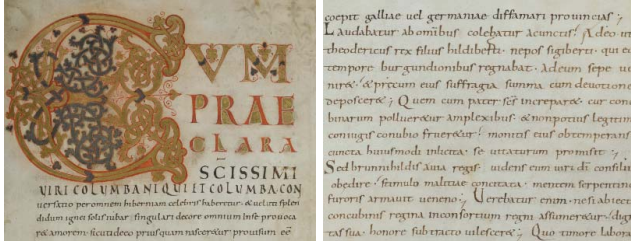 CUM
PRAE
CLARA
SCISSIMI
UIRI COLUMBANI QUI ET COLUMBA CON
uersatio per omnem hiberniam celebris haberetur. & ueluti splen
didum ignei solis iubar. singulari decore omnium in se prouoca
re amorem. sicuti deo priusquam nasceretur prouisum eē
coepit galliae uel germaniae diffamari prouincias;
Laudabatur ab omībus colebatur a cunctis. Adeo ut
theodericus rex filius hildiberti. nepos sigiberti. qui eo
tempore burgundionibus regnabat. Ad eum sepe ue
nir&. & precum eius suffragia summa cum deuotione
deposcer&; Quem cum pater sc̄s increpar& cur con
binarum pollueretur amplexibus. & non potius legitim
coniugis conubio frueretur. monitis eius obtemperans
cuncta huiusmodi inlicita. se uitaturum promisit;
Sed brunnihildis auia regis. uidens eum uiri dī consiliis
obedire. stimulo malitiae concitata. mentem serpentin
furoris armauit ueneno; Uerebatur enim. ne si abiectis
concubinis regina in consortium regni assumeretur. dig
tas sua. honore subtracto uilescer&; Quo timore labora